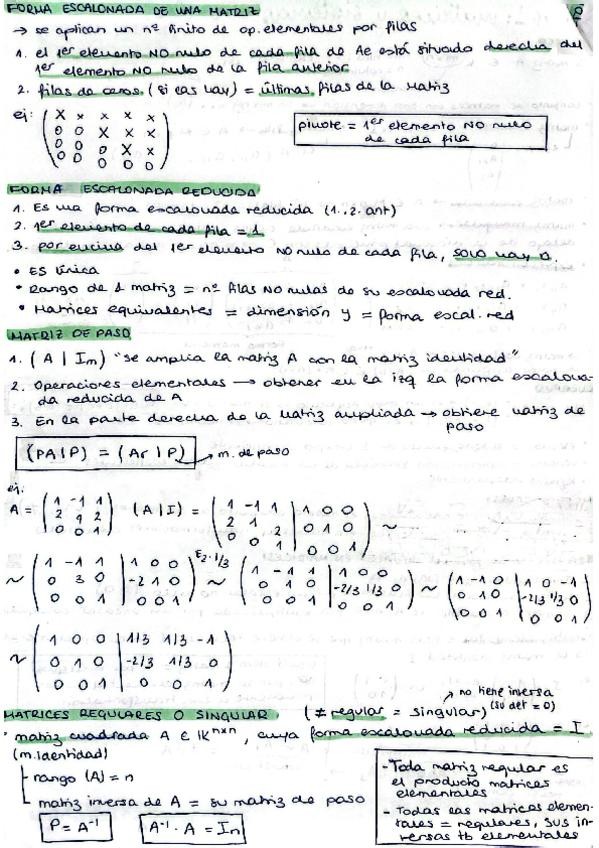 FORMA ESCALONADA DE UNA MATRIZ
→ se aplican un nº finito de op. elementales por filas
1. el 1er elemento NO nulo de cada fila de Ae está situado derecha del
1er elemento NO nulo de la fila anterior
2. filas de ceros (si las hay) = últimas filas de la matriz
ej: ( x x x x x
0 0 x x x
0 0 0 x x
0 0 0 0 0 )
pivote = 1er elemento NO nulo
de cada fila
FORMA ESCALONADA REDUCIDA
1. Es una forma escalonada reducida (1..2. ant)
2. 1er elemento de cada fila = 1
3. por encima del 1er elemento NO nulo de cada fila, SOLO hay 0.
• ES única
• Rango de 1 matriz = nº filas NO nulas de su escalonada red.
• Matrices equivalentes = dimensión y = forma escal. red
MATRIZ DE PASO
1. (A | Im) "se amplia la matriz A con la matriz identidad"
2. Operaciones elementales → obtener en la izq la forma escalona-
da reducida de A
3. En la parte derecha de la matriz ampliada → obtiene matriz de
paso
(PA | P) = (Ar | P) → m. de paso
ej:
A = ( 1 -1 1 (A | I) = ( 1 -1 1 | 1 0 0
2 1 2 2 1 2 | 0 1 0
0 0 1 ) 0 0 | 0 0 1 ) ~
~ ( 1 -1 1 | 1 0 0 E2·1/3 ( 1 -1 1 | 1 0 0 ( 1 -1 0 | 1 0 -1
0 3 0 | -2 1 0 ~ 0 1 0 | -2/3 1/3 0 ~ 0 1 0 | -2/3 1/3 0
0 0 1 | 0 0 1 ) 0 0 1 | 0 0 1 ) 0 0 1 | 0 0 1 )
~ ( 1 0 0 | 1/3 1/3 -1
0 1 0 | -2/3 1/3 0
0 0 1 | 0 0 1 )
no tiene inversa
(su det = 0)
MATRICES REGULARES O SINGULAR (≠ regular = singular)
• matriz cuadrada A ∈ IK^nxn, cuya forma escalonada reducida = I
(m. identidad)
- rango (A) = n
- matriz inversa de A = su matriz de paso
P = A^-1
A^-1 · A = In
- Toda matriz regular es
el producto matrices
elementales
- Todas las matrices elemen-
tales = regulares, sus in-
versas tb elementales